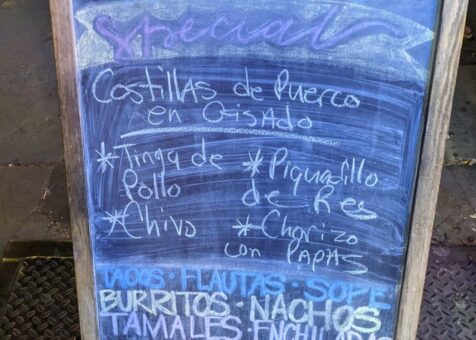 Special
Costillas de Puerco
en Guisado
* Tinga de Pollo
* Picadillo de Res
* Chivo
* Chorizo con PAPAS
TACOS · FLAUTAS · SOPE
BURRITOS · NACHOS
TAMALES · ENCHILADAS